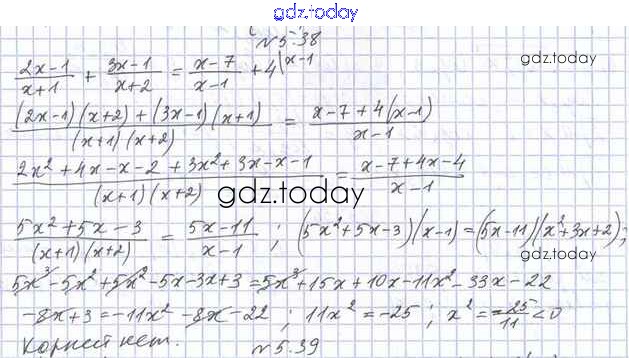 gdz.today
№5.38
gdz.today
(2x-1)/(x+1) + (3x-1)/(x+2) = (x-7)/(x-1) + 4 |x-1
((2x-1)(x+2)+(3x-1)(x+1))/((x+1)(x+2)) = (x-7+4(x-1))/(x-1)
(2x²+4x-x-2+3x²+3x-x-1)/((x+1)(x+2)) = (x-7+4x-4)/(x-1)
gdz.today
(5x²+5x-3)/((x+1)(x+2)) = (5x-11)/(x-1) ; (5x²+5x-3)(x-1)=(5x-11)(x²+3x+2);
5x³-5x²+5x²-5x-3x+3=5x³+15x+10x-11x²-33x-22
-8x+3=-11x²-8x-22 ; 11x²=-25 ; x²=-25/11<0
Корней нет.
№5.39